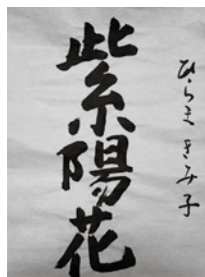 紫陽花
ひらまきみ子